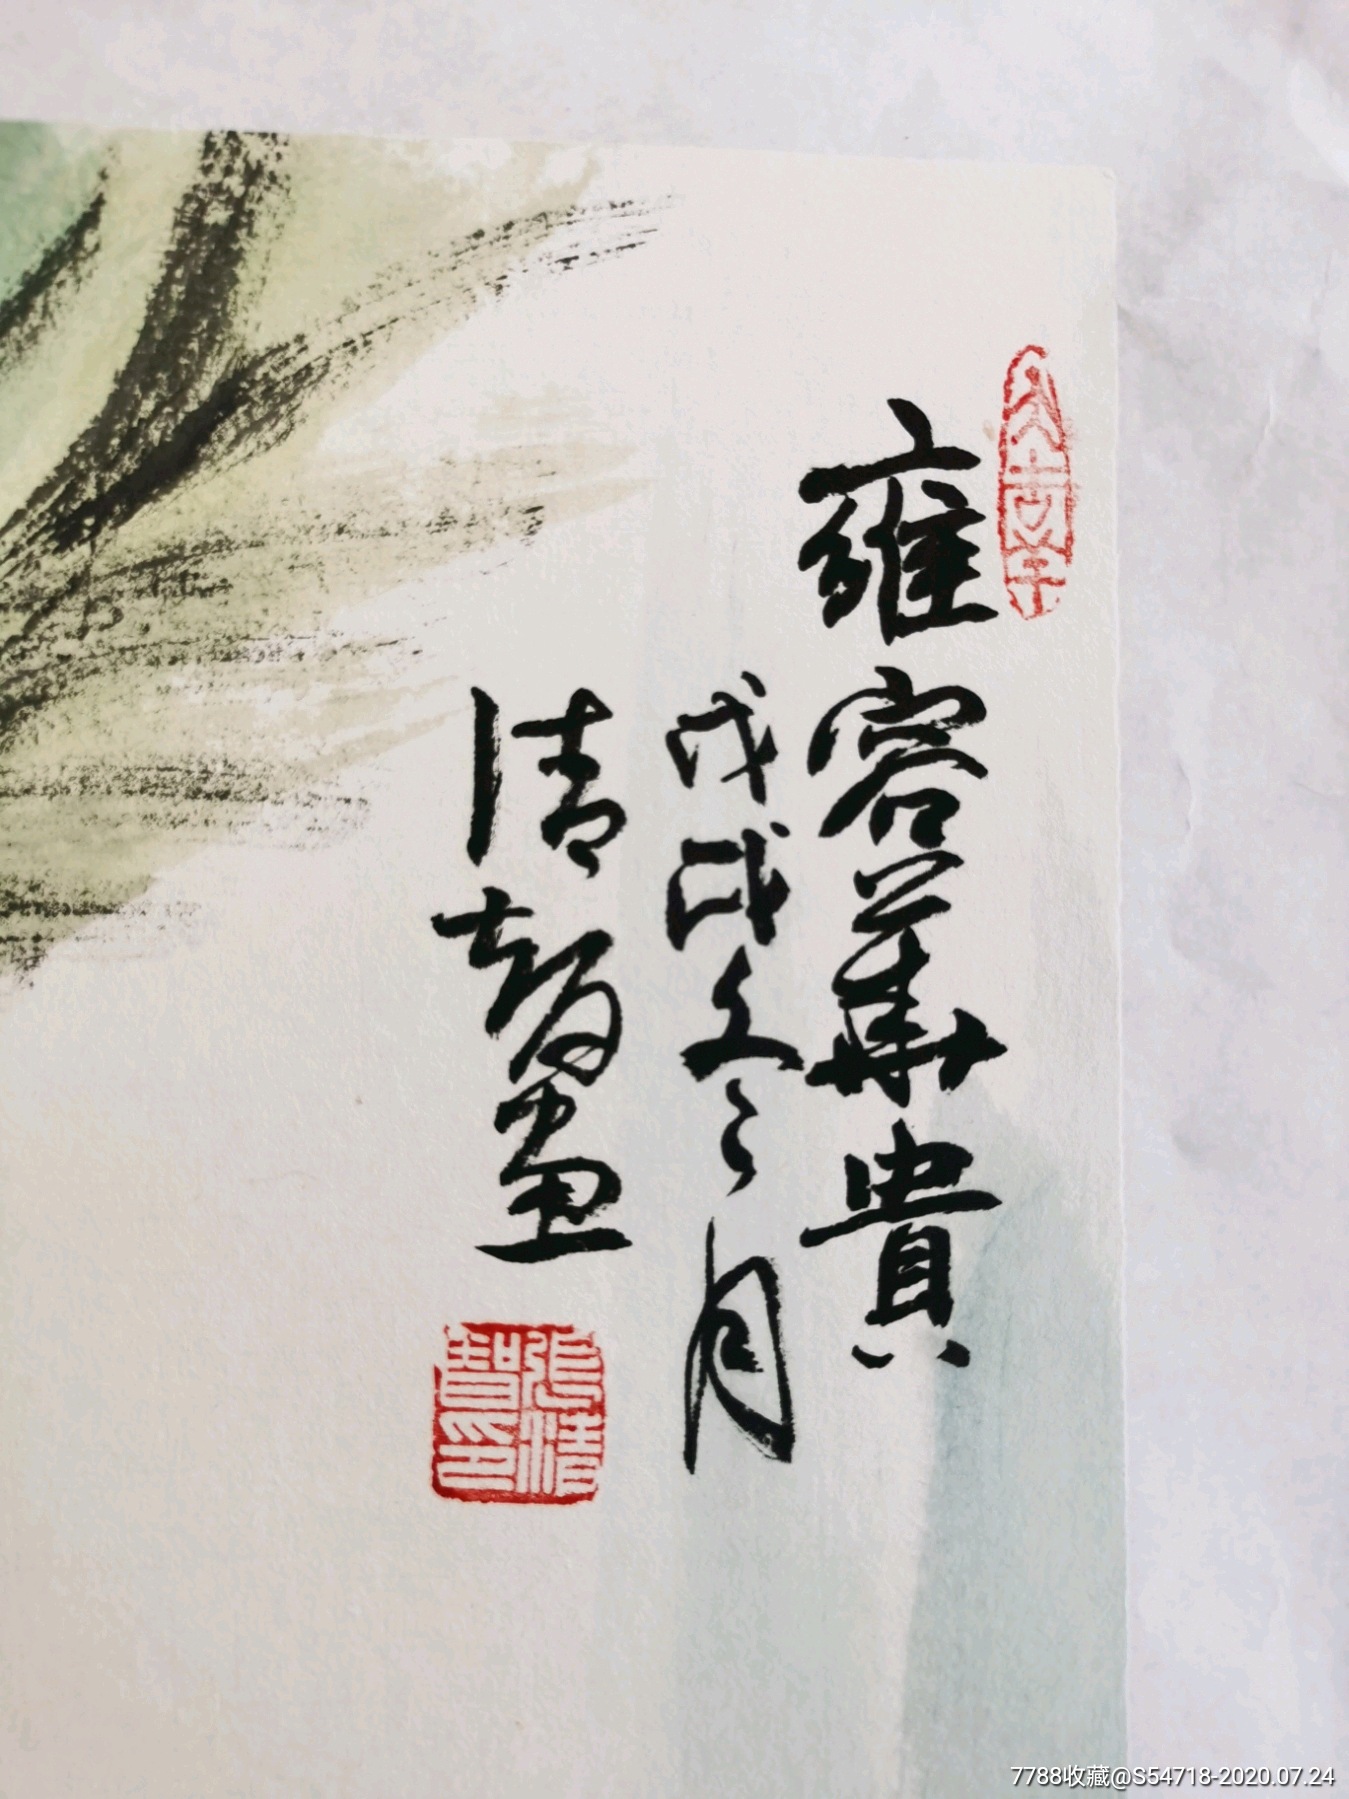 雍容華貴
戊戌冬月
清智畫
張清智印
7788收藏@S54718-2020.07.24